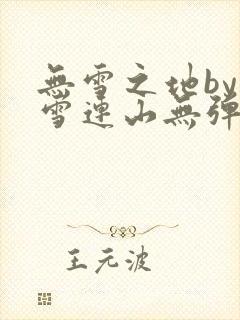 無雪之地by
雪連山無彈
王元波